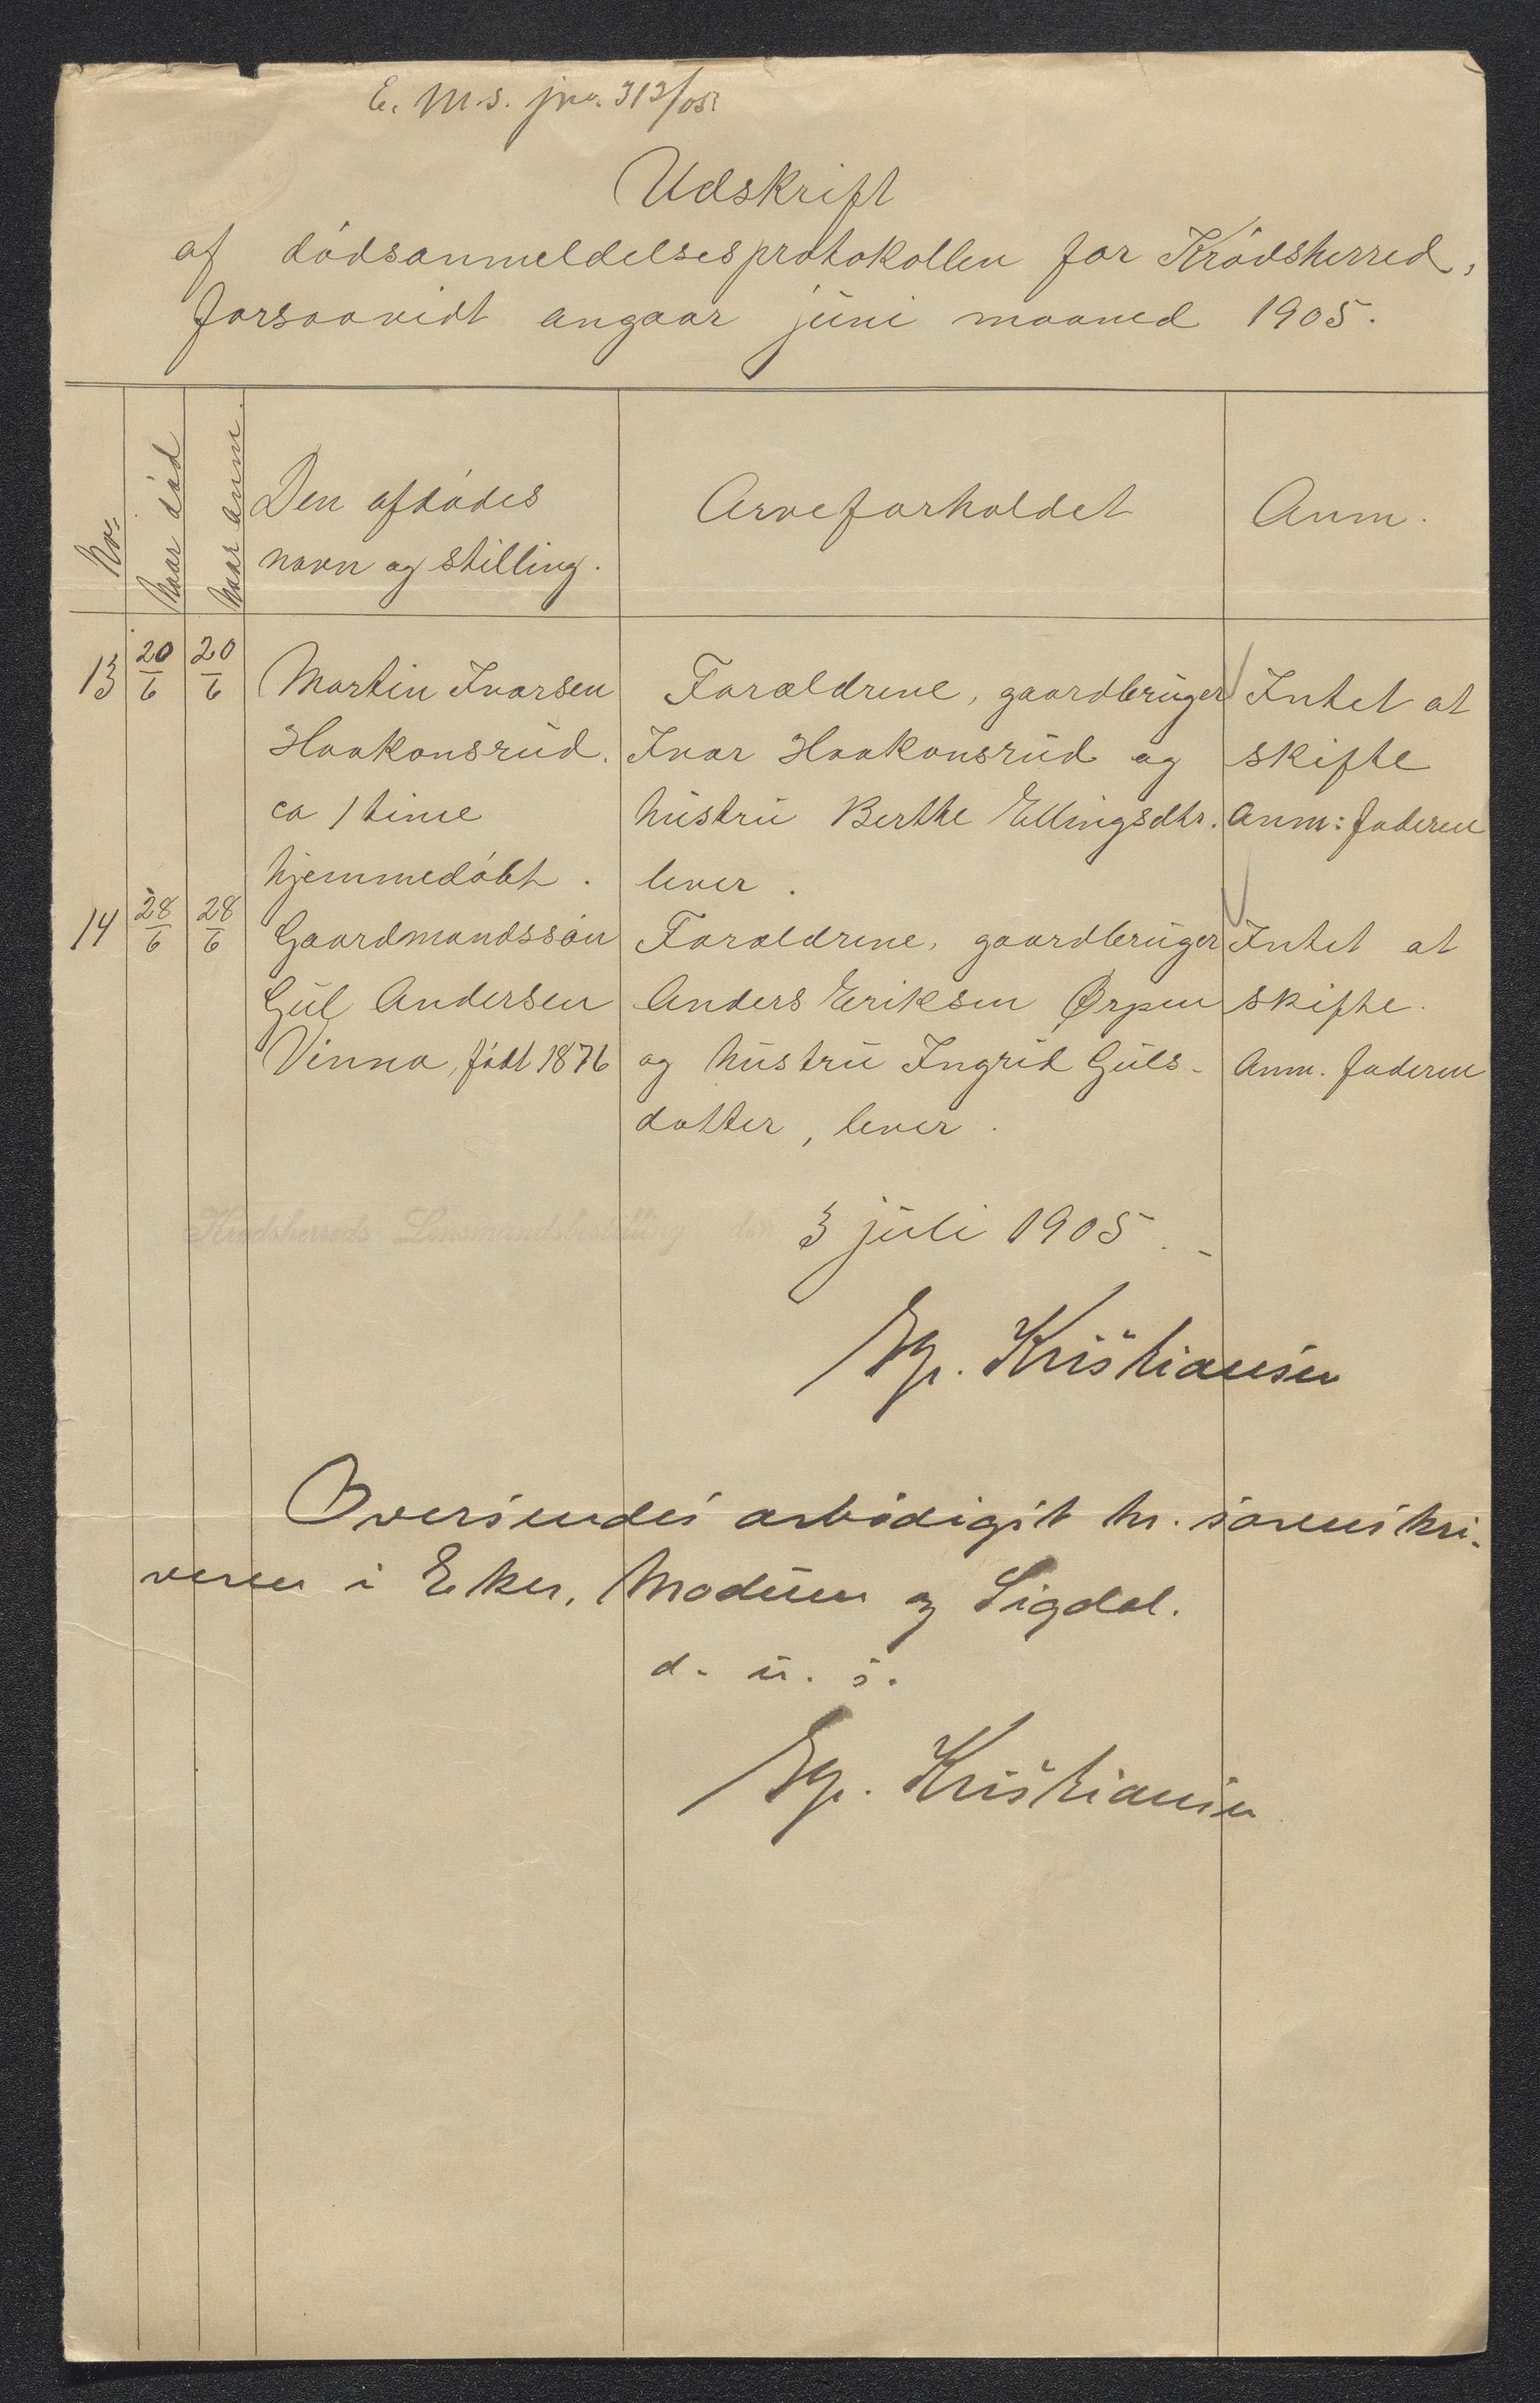 E. M. S. jno. 313/05.
Udskrift
af dødsanmeldelsesprotokollen for Krødsherred,
forsaavidt angaar juni maaned 1905.
No. | Naar død | Naar anm. | Den afdødes navn og stilling. | Arveforholdet | Anm.
13 | 20/6 | 20/6 | Martin Ivarsen | Forældrene, gaardbruger | Intet at
Haakonsrud. | Ivar Haakonsrud og | skifte
ca 1 time | hustru Berthe Ellingsdtr. | Anm: faderen
hjemmedøbt. | lever.
14 | 28/6 | 28/6 | Gaardmandssøn | Forældrene, gaardbruger | Intet at
Gul Andersen | Anders Eriksen Ørpen | skifte.
Vinna, født 1876 | og hustru Ingrid Guls- | Anm. faderen
datter, lever.
Krødsherreds Lensmandsbestilling den 3 juli 1905.
Kristiansen
Oversendes ærbødigst hr. sorenskri-
veren i Eker, Modum og Sigdal.
d. u. s.
Kristiansen